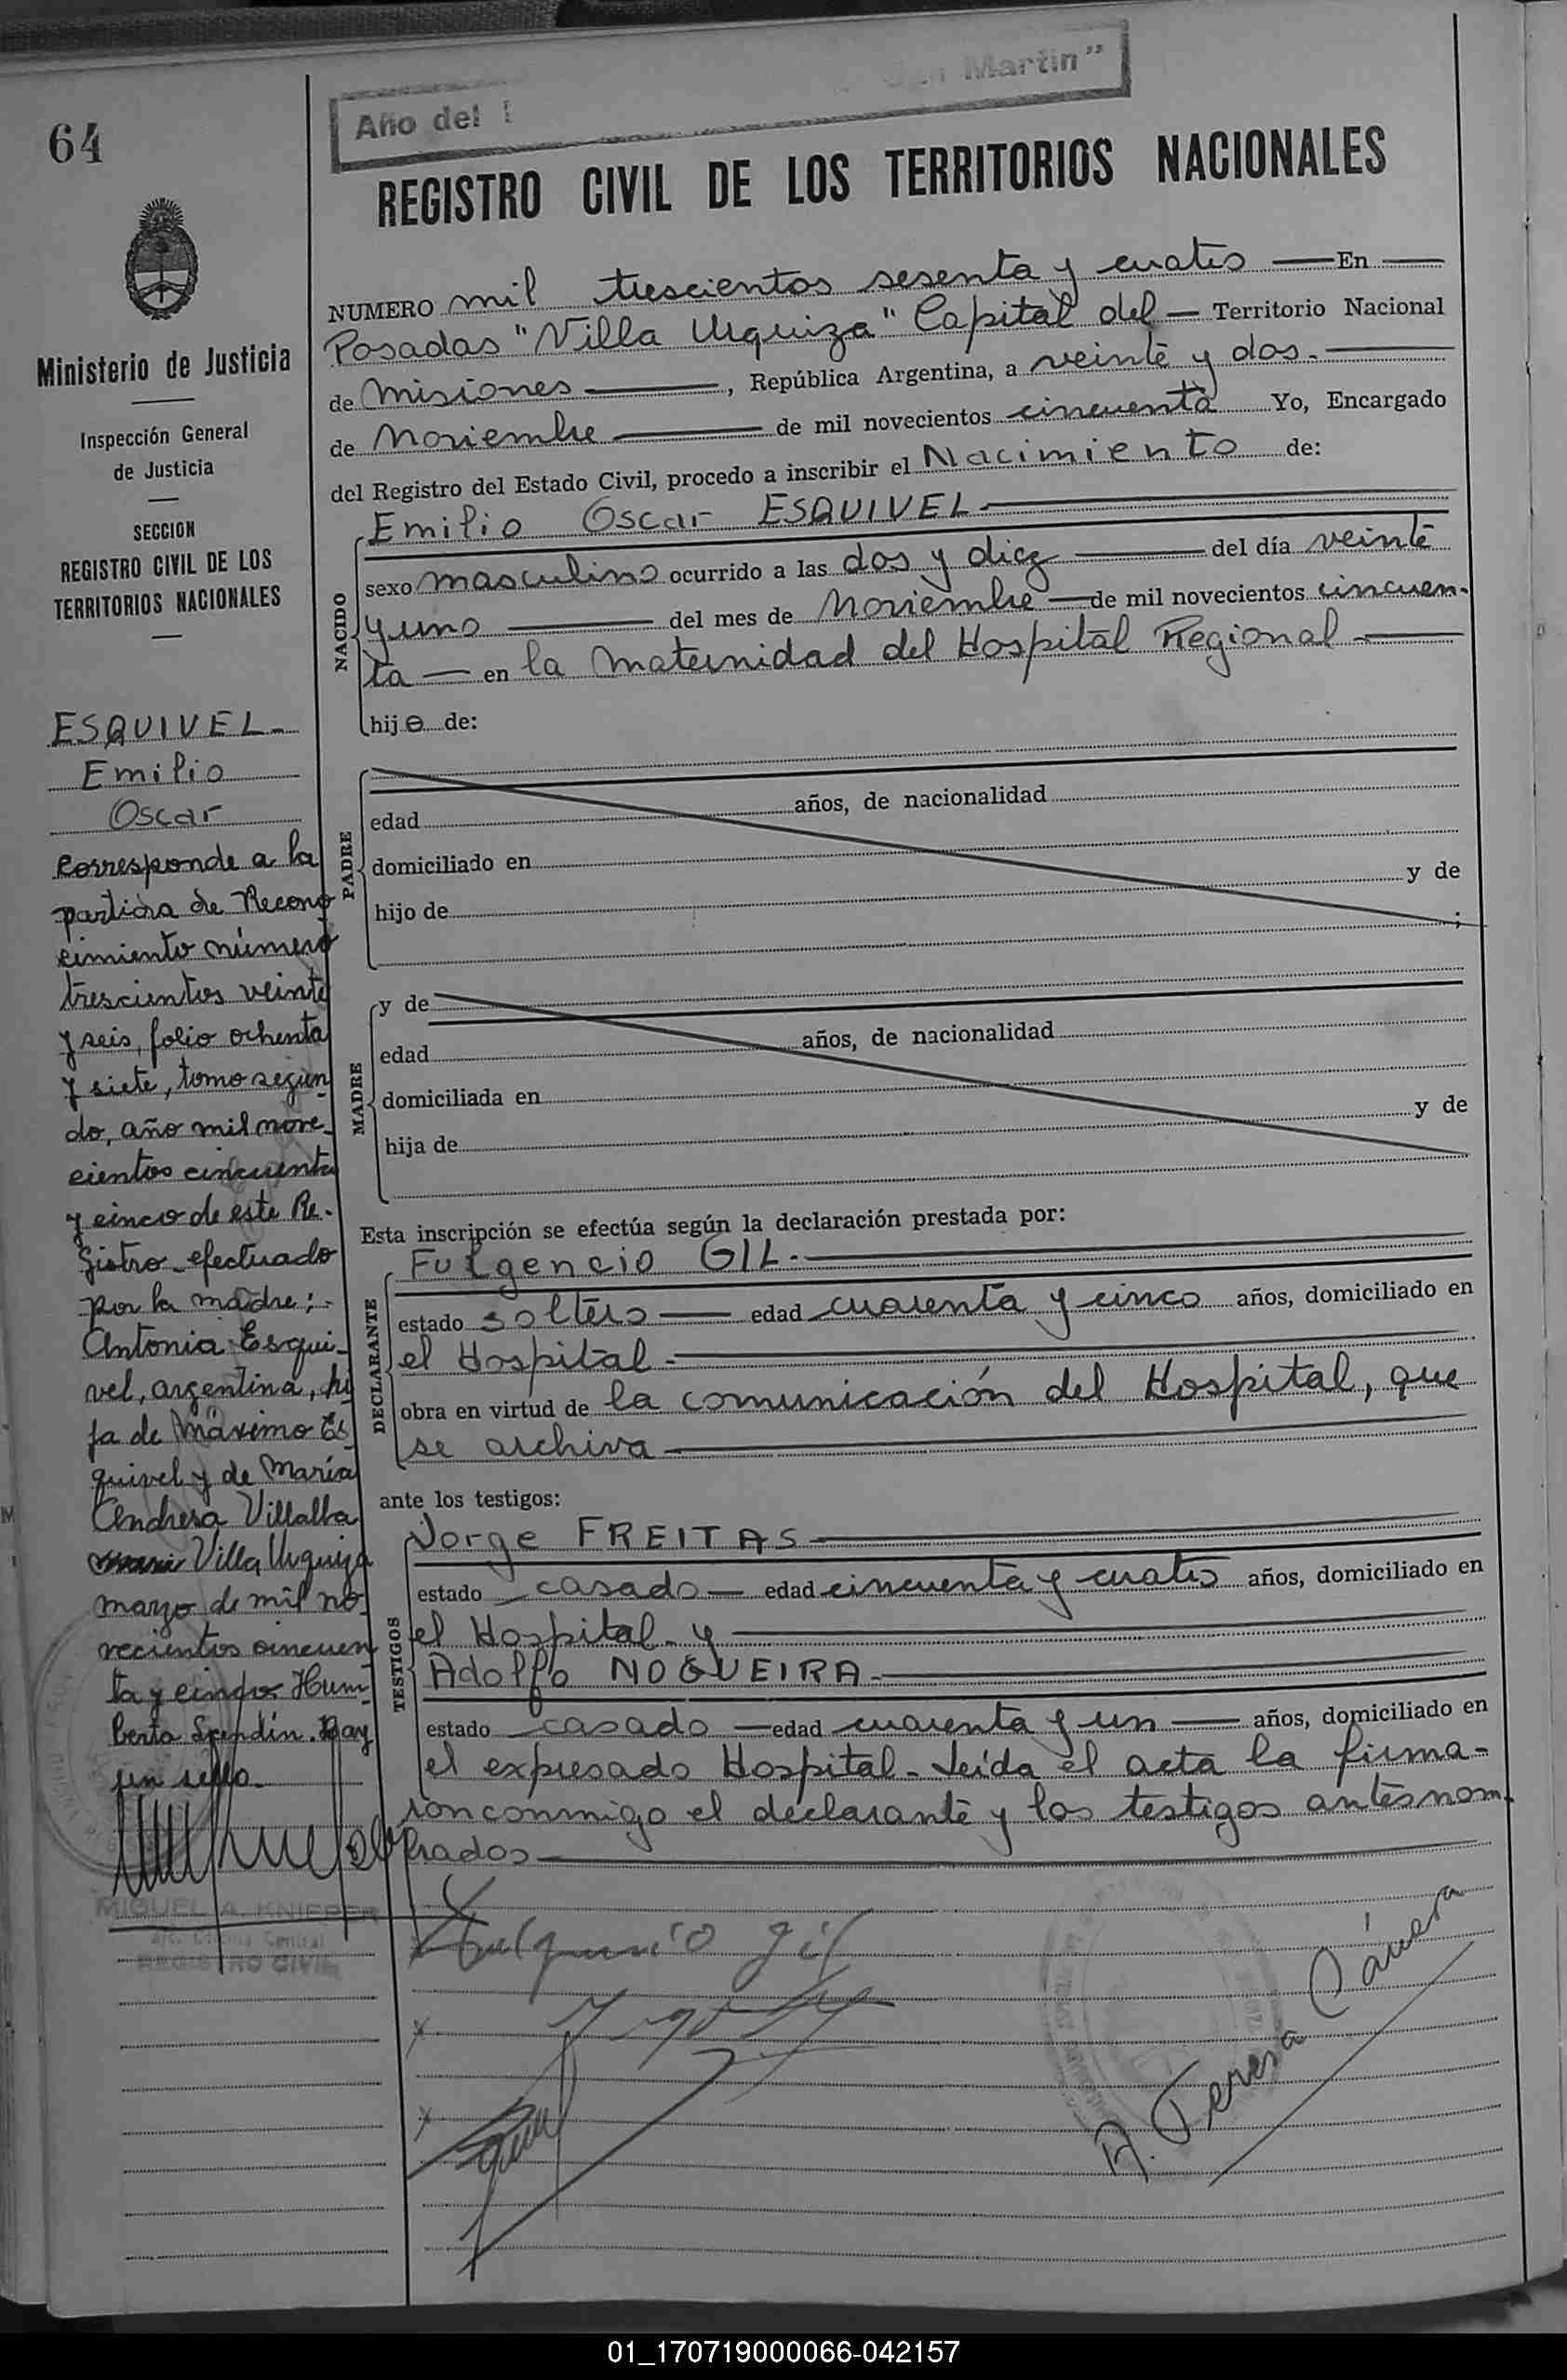 64
Año del
Martín"
REGISTRO CIVIL DE LOS TERRITORIOS NACIONALES
Ministerio de Justicia
Inspección General
de Justicia
SECCION
REGISTRO CIVIL DE LOS
TERRITORIOS NACIONALES
ESQUIVEL-
Emilio
Oscar
corresponde a la
partida de Recono
cimiento número
trescientos veinte
y seis, folio ochenta
y siete, tomo segun
do, año mil nove-
cientos cincuenta
y cinco de este Re-
gistro efectuado
por la madre:-
Antonia Esqui-
vel, argentina, hi
ja de Máximo Es
quivel y de María
Andresa Villalba
Villa Urquiza
marzo de mil no-
vecientos cincuen
ta y cinco. Hum-
berto Hay
un sello-
MIGUEL A. KNIEPER
Central
REGISTRO CIVIL
NUMERO mil trescientos sesenta y cuatro — En —
Posadas "Villa Urquiza" Capital del — Territorio Nacional
de Misiones —, República Argentina, a veinte y dos.—
de Noviembre — de mil novecientos cincuenta Yo, Encargado
del Registro del Estado Civil, procedo a inscribir el Nacimiento de:
NACIDO
Emilio Oscar ESQUIVEL-
sexo masculino ocurrido a las dos y diez — del día veinte
y uno — del mes de Noviembre — de mil novecientos cincuen-
ta — en la Maternidad del Hospital Regional —
hijo de:
PADRE
edad años, de nacionalidad
domiciliado en
hijo de y de
;
MADRE
y de
edad años, de nacionalidad
domiciliada en
hija de y de
Esta inscripción se efectúa según la declaración prestada por:
DECLARANTE
Fulgencio GIL.-
estado soltero — edad cuarenta y cinco años, domiciliado en
el Hospital-
obra en virtud de la comunicación del Hospital, que
se archiva —
ante los testigos:
TESTIGOS
Jorge FREITAS —
estado casado — edad cincuenta y cuatro años, domiciliado en
el Hospital- y —
Adolfo NOGUEIRA-
estado casado — edad cuarenta y un — años, domiciliado en
el expresado Hospital- Leída el acta la firma-
ron conmigo el declarante y los testigos antes nom-
brados —
Fulgencio Gil
A. Teresa Cámera
01_170719000066-042157